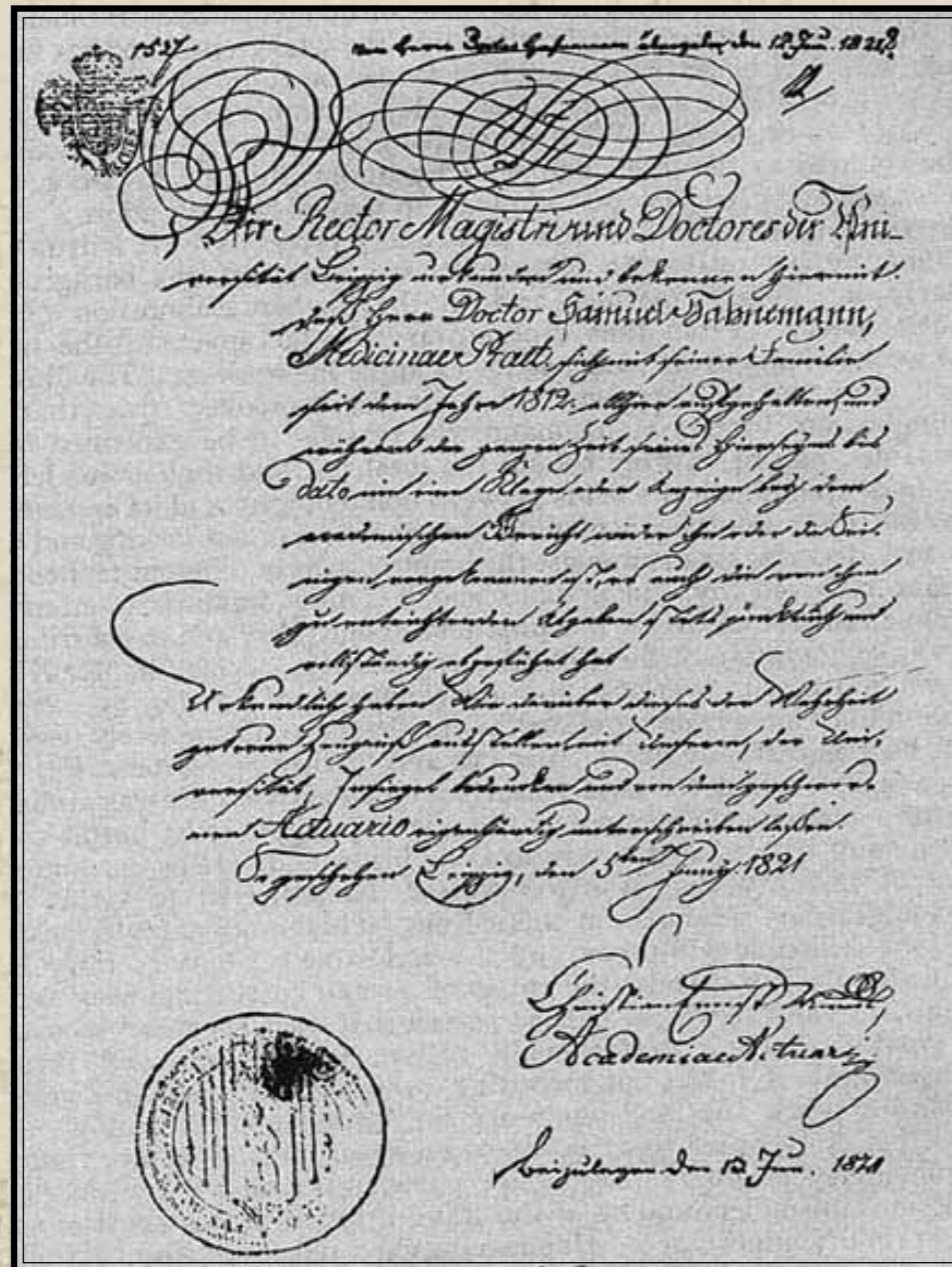 1527
von Herrn Doctor Hahnemann übergeben den 12 Jun. 1821.
Wir Rector Magistri und Doctores der Uni-
versität Leipzig urkunden und bekennen hiermit.
daß Herr Doctor Samuel Hahnemann,
Medicinae Pract. sich mit seiner Familie
seit dem Jahre 1812. allhier aufgehalten, und
während der ganzen Zeit seines Hierseyns bis
dato nie eine Klage oder Anzeige bey dem
academischen Gericht wieder ihn oder die Sei-
nigen vorgekommen ist, er auch die von ihm
zu entrichtenden Abgaben stets pünktlich und
vollständig abgeführt hat
Urkundlich haben Wir darüber dieses der Wahrheit
gemäße Zeugniß ausstellen, mit Unserm, der Uni-
versität, Insiegel bedrucken und von dem geschwor-
nen Actuario eigenhändig unterschreiben laßen.
So geschehen Leipzig, den 5ten Juny 1821
Christian Ernst
Academiae Actuar.
Beizulegen den 12 Jun. 1821